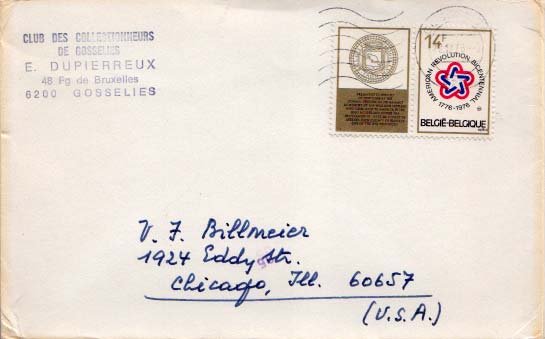 CLUB DES COLLECTIONNEURS
DE GOSSELIES
E. DUPIERREUX
48 Fg de Bruxelles
6200 GOSSELIES
14F
AMERICAN REVOLUTION BICENTENNIAL
1776-1976
BELGIË-BELGIQUE
V. F. Billmeier
1924 Eddy Str.
Chicago, Ill. 60657
(U.S.A.)